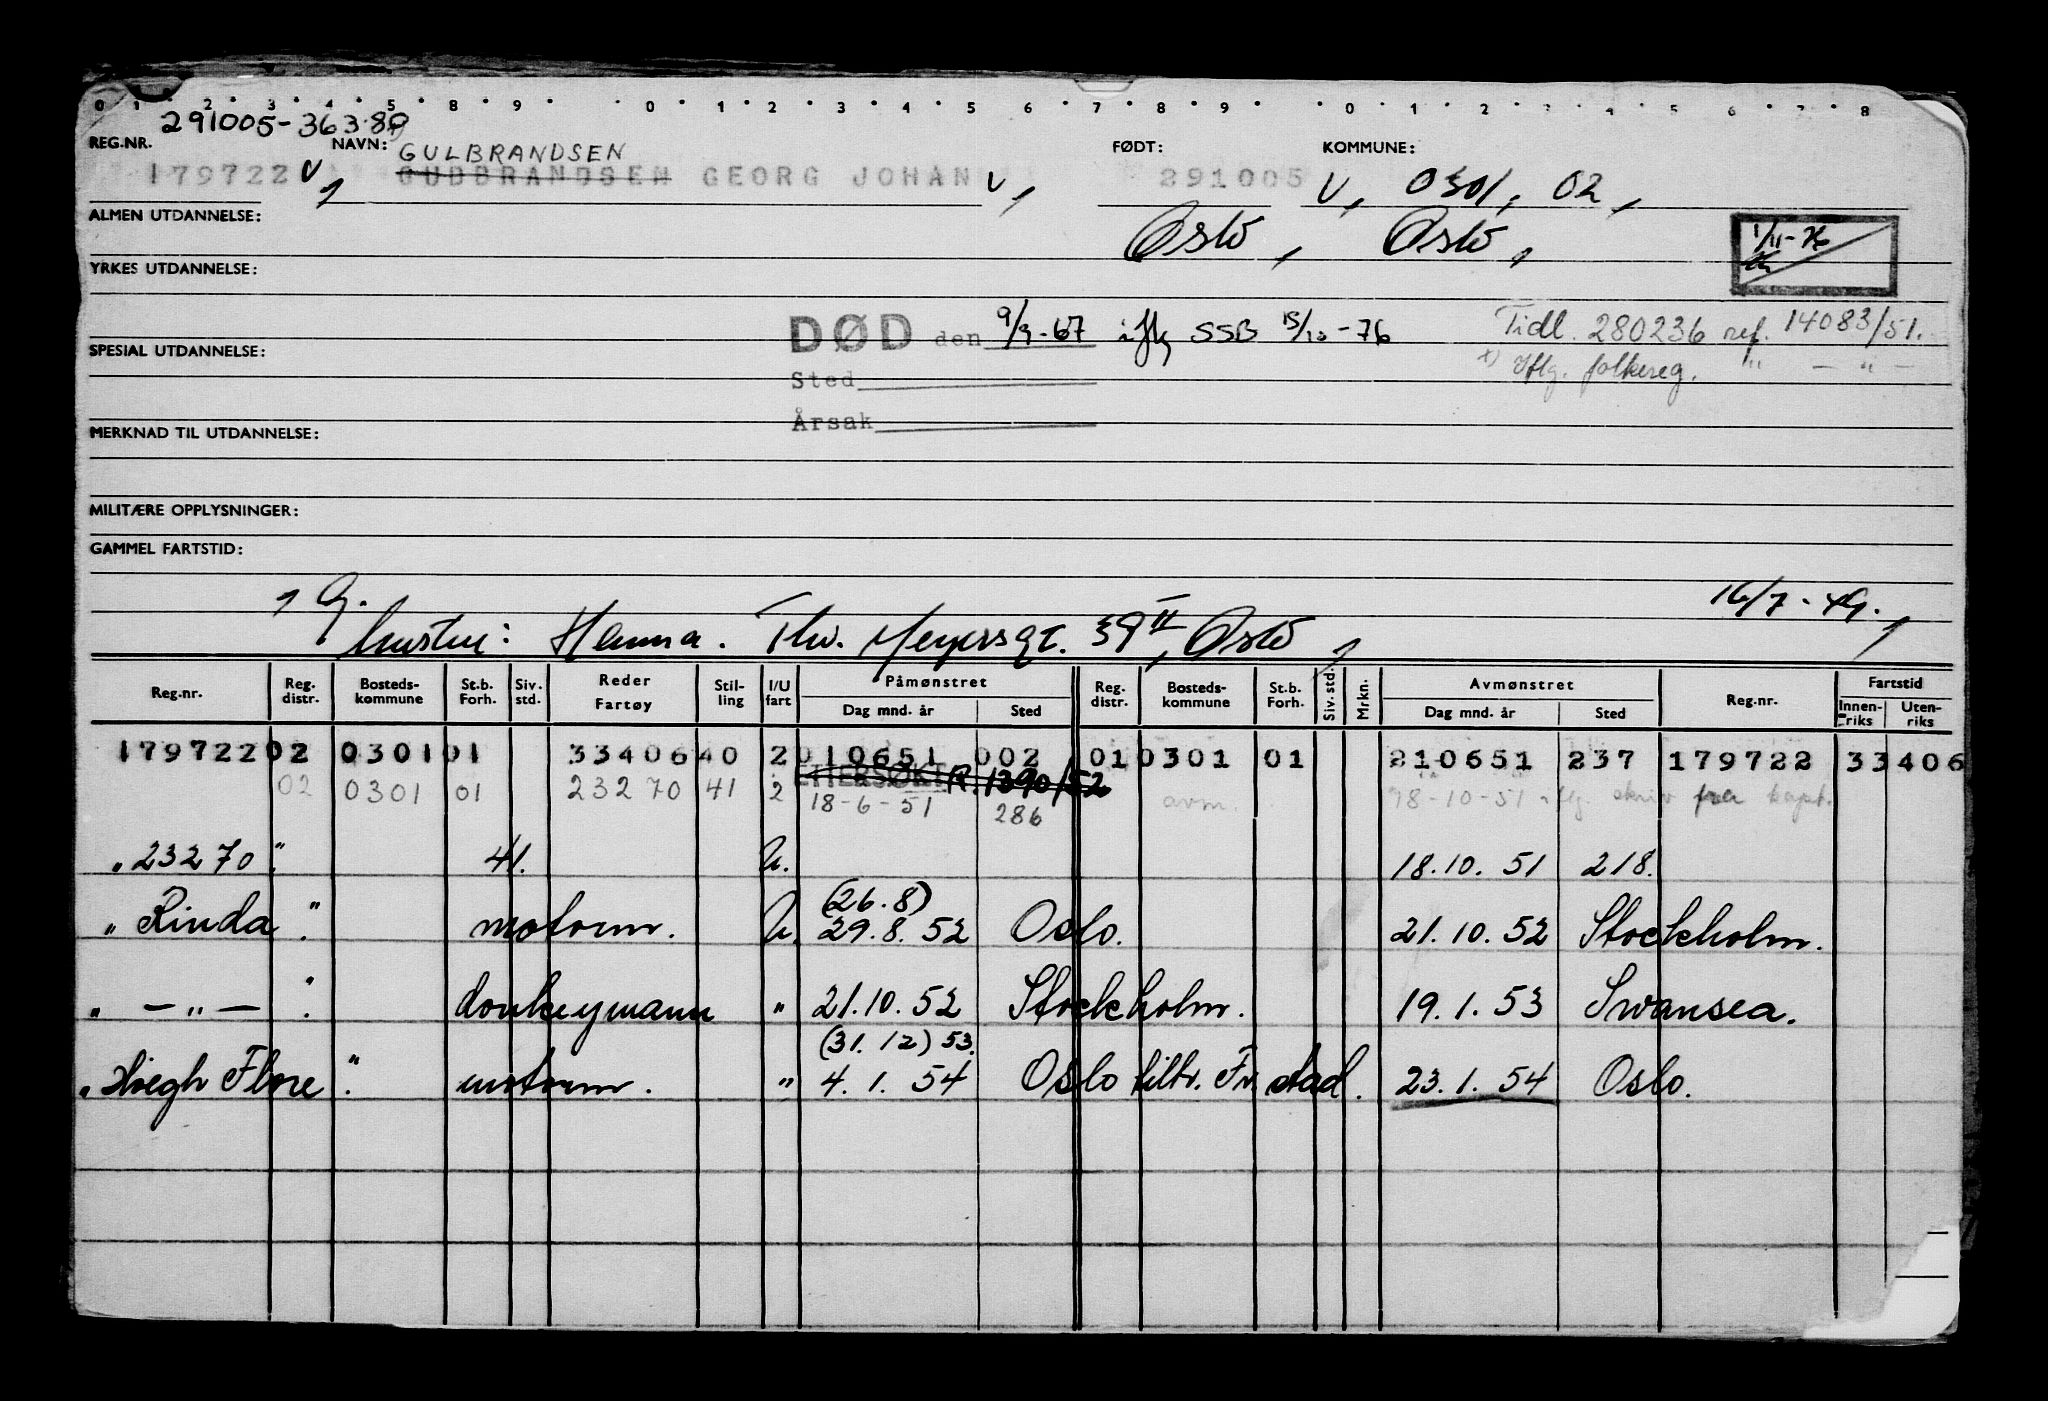 0 1 2 3 4 5 8 9 0 1 2 3 4 5 6 7 8 9 0 1 2 3 4 5 6 7 8
291005-363.80
REG.NR. NAVN: GULBRANDSEN FØDT: KOMMUNE:
179722 V, GUDBRANDSEN GEORG JOHAN V, 291005 V, 0301, 02,
ALMEN UTDANNELSE: Oslo, Oslo,
1/11-76
YRKES UTDANNELSE:
DØD den 9/9-67 iflg SSB 15/10-76 Tidl. 280236 ref. 14083/51.
SPESIAL UTDANNELSE:
Sted x) Iflg. folkereg. " — " —
Årsak
MERKNAD TIL UTDANNELSE:
MILITÆRE OPPLYSNINGER:
GAMMEL FARTSTID:
, G. 16/7-49.,
hustru: Hanna. Thv. Meyersgt. 39 II, Oslo,
Reg.nr. Reg. distr. Bosteds-kommune St.b. Forh. Siv. std. Reder Fartøy Stil-ling I/U fart Påmønstret Dag mnd. år Sted Reg. distr. Bosteds-kommune St.b. Forh. Siv. std. Mrkn. Avmønstret Dag mnd. år Sted Reg.nr. Fartstid Innen-riks Uten-riks
179722 02 0301 01 33406 40 2 010651 002 01 0301 01 210651 237 179722 33406
ETTERSØKT R. 1390/52
02 0301 01 23270 41 2 18-6-51 286 avm. 18-10-51 iflg. skriv fra kapt.
"23270" 41. U. 18.10.51 218.
(26.8)
"Rinda". motorm. U. 29.8.52 Oslo. 21.10.52 Stockholm.
" — " — " . donkeymann " 21.10.52 Stockholm. 19.1.53 Swansea.
(31.12) 53.
"Høegh Flore". motorm. " 4.1.54 Oslo tiltr. Fr.stad. 23.1.54 Oslo.